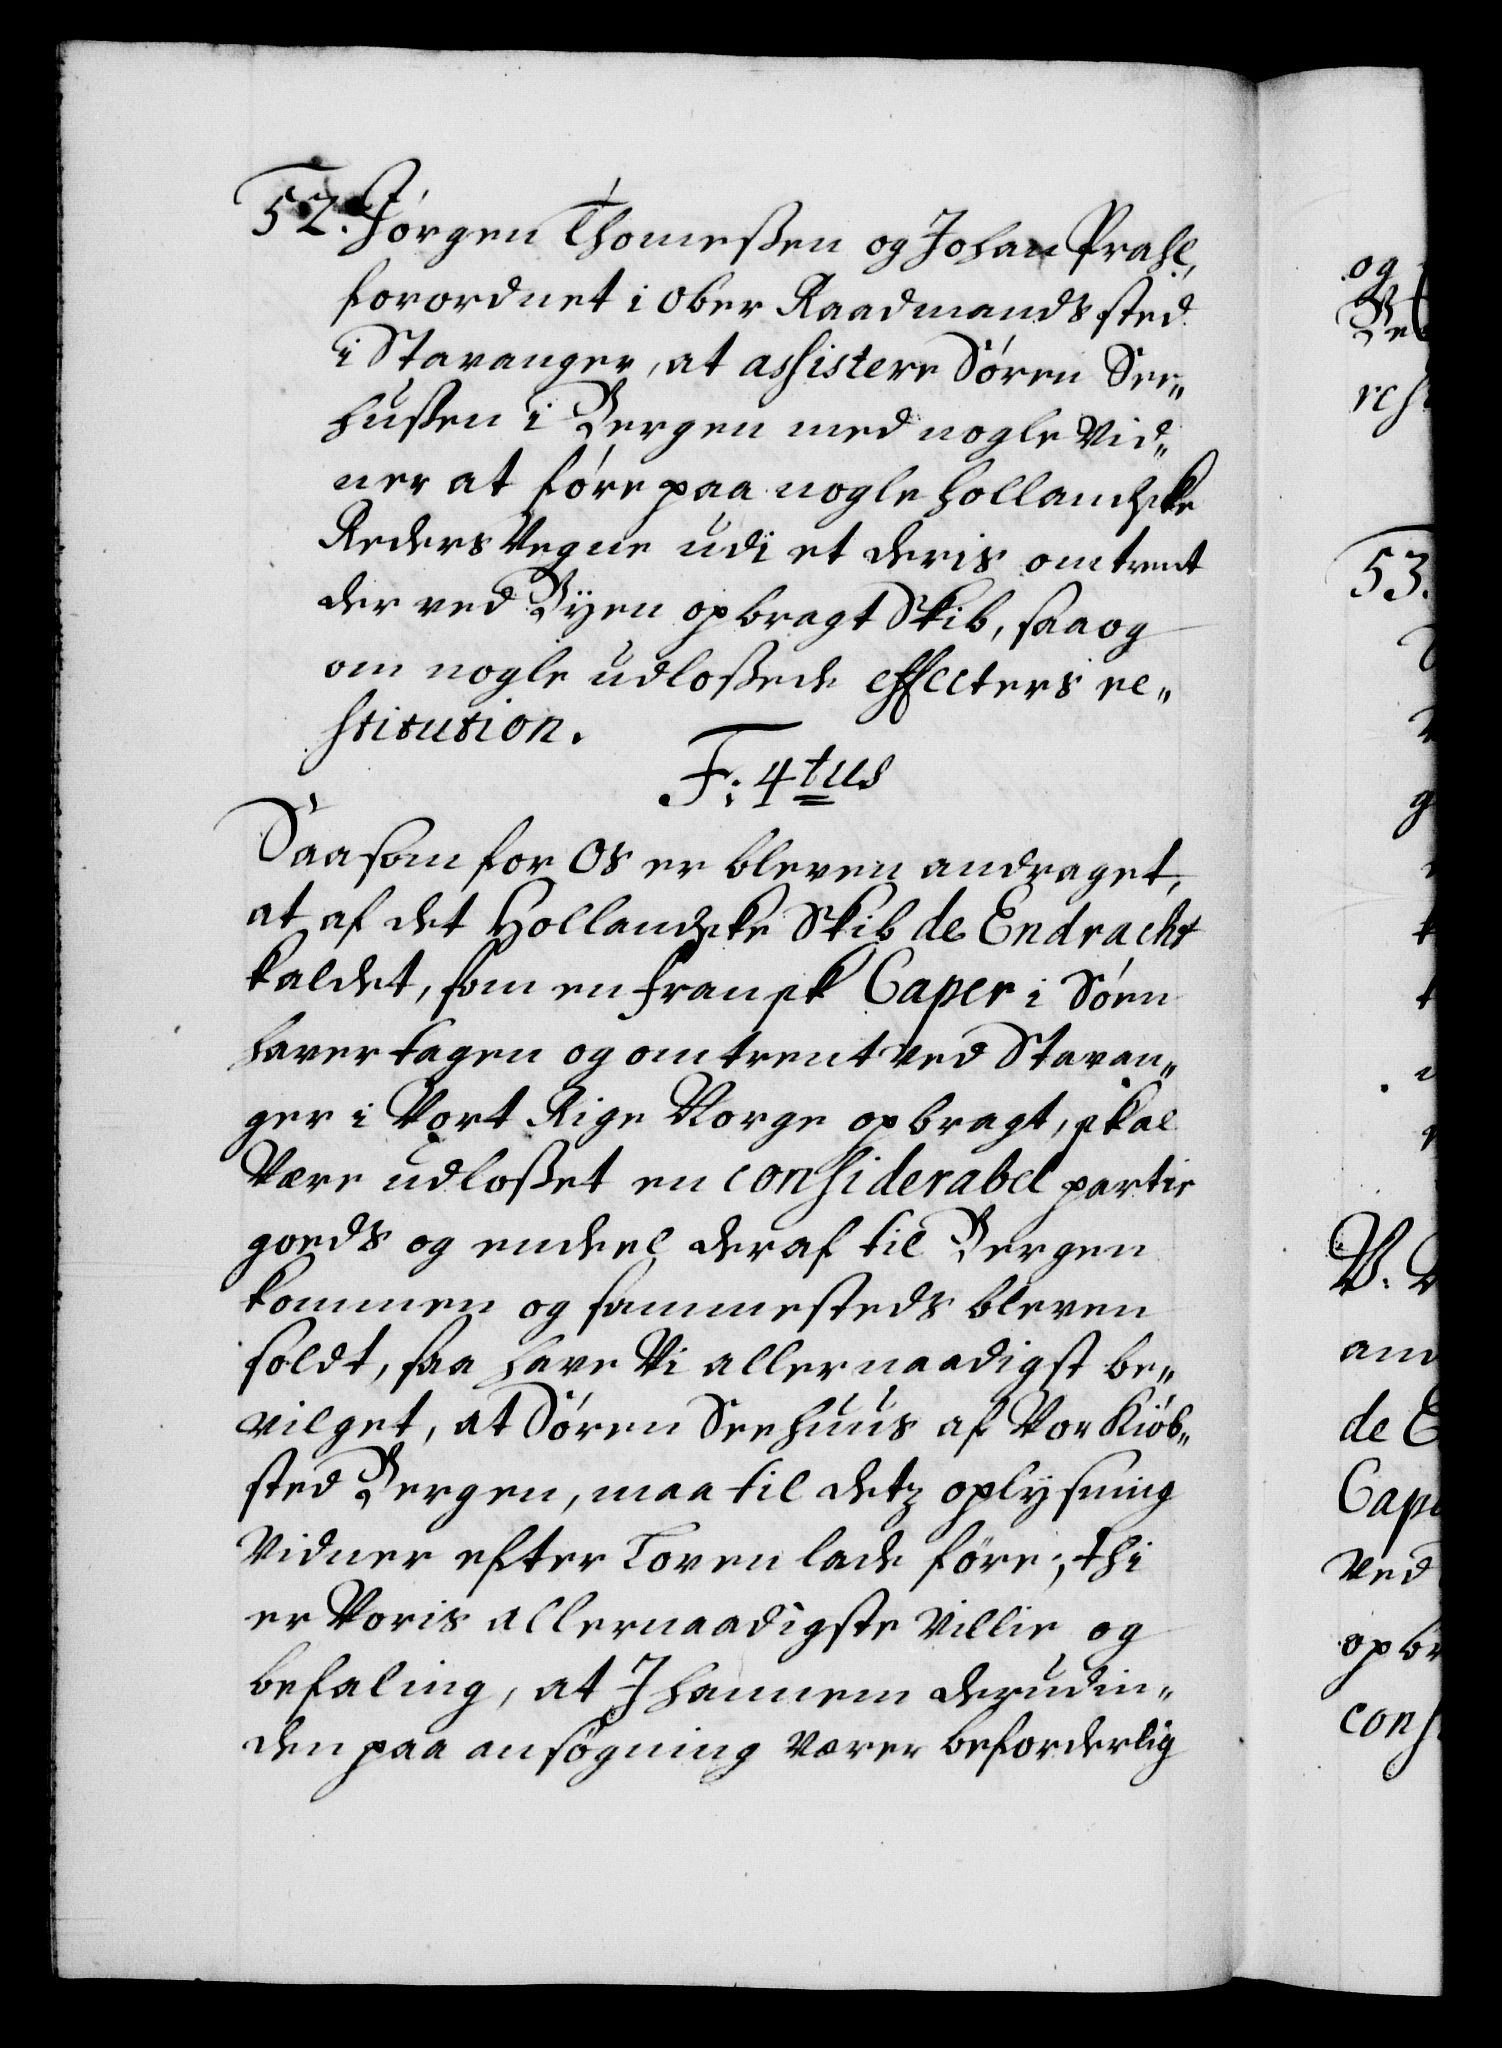 52. Jórgen Thomeßen og Johan Prahl,
forordnet i Ober Raadmands sted
i Stavanger, at assistere Sóren See„
hußen i Bergen med nogle Vid„
ner at fóre paa nogle hollandske
Reders Vegne udi et deris omtrent
der ved Byen opbragt Skib, saa og
om nogle udloßede effecters re„
stitution.
F: 4tus
Saasom for Os er bleven andraget,
at af det Hollandske Skib de Endracht
kaldet, som en fransk Caper i Sóen
haver tagen og omtrent ved Stavan„
ger i Vort Rige Norge opbragt, skal
Være udloßet en considerabel partie
goeds og endeel deraf til Bergen
kommen og sammesteds bleven
soldt, saa have Vi allernaadigst be„
vilget, at Sóren Seehuus af Vor Kiób„
sted Bergen, maa til detz oplysning
Vidner efter Loven lade fóre; thi
er Voris allernaadigste Villie og
befaling, at J hannem derudin„
den paa ansógning værer beforderlig
og
Ve
rest
53.
V. V
and
de E
Cape
ved
opbr
cons